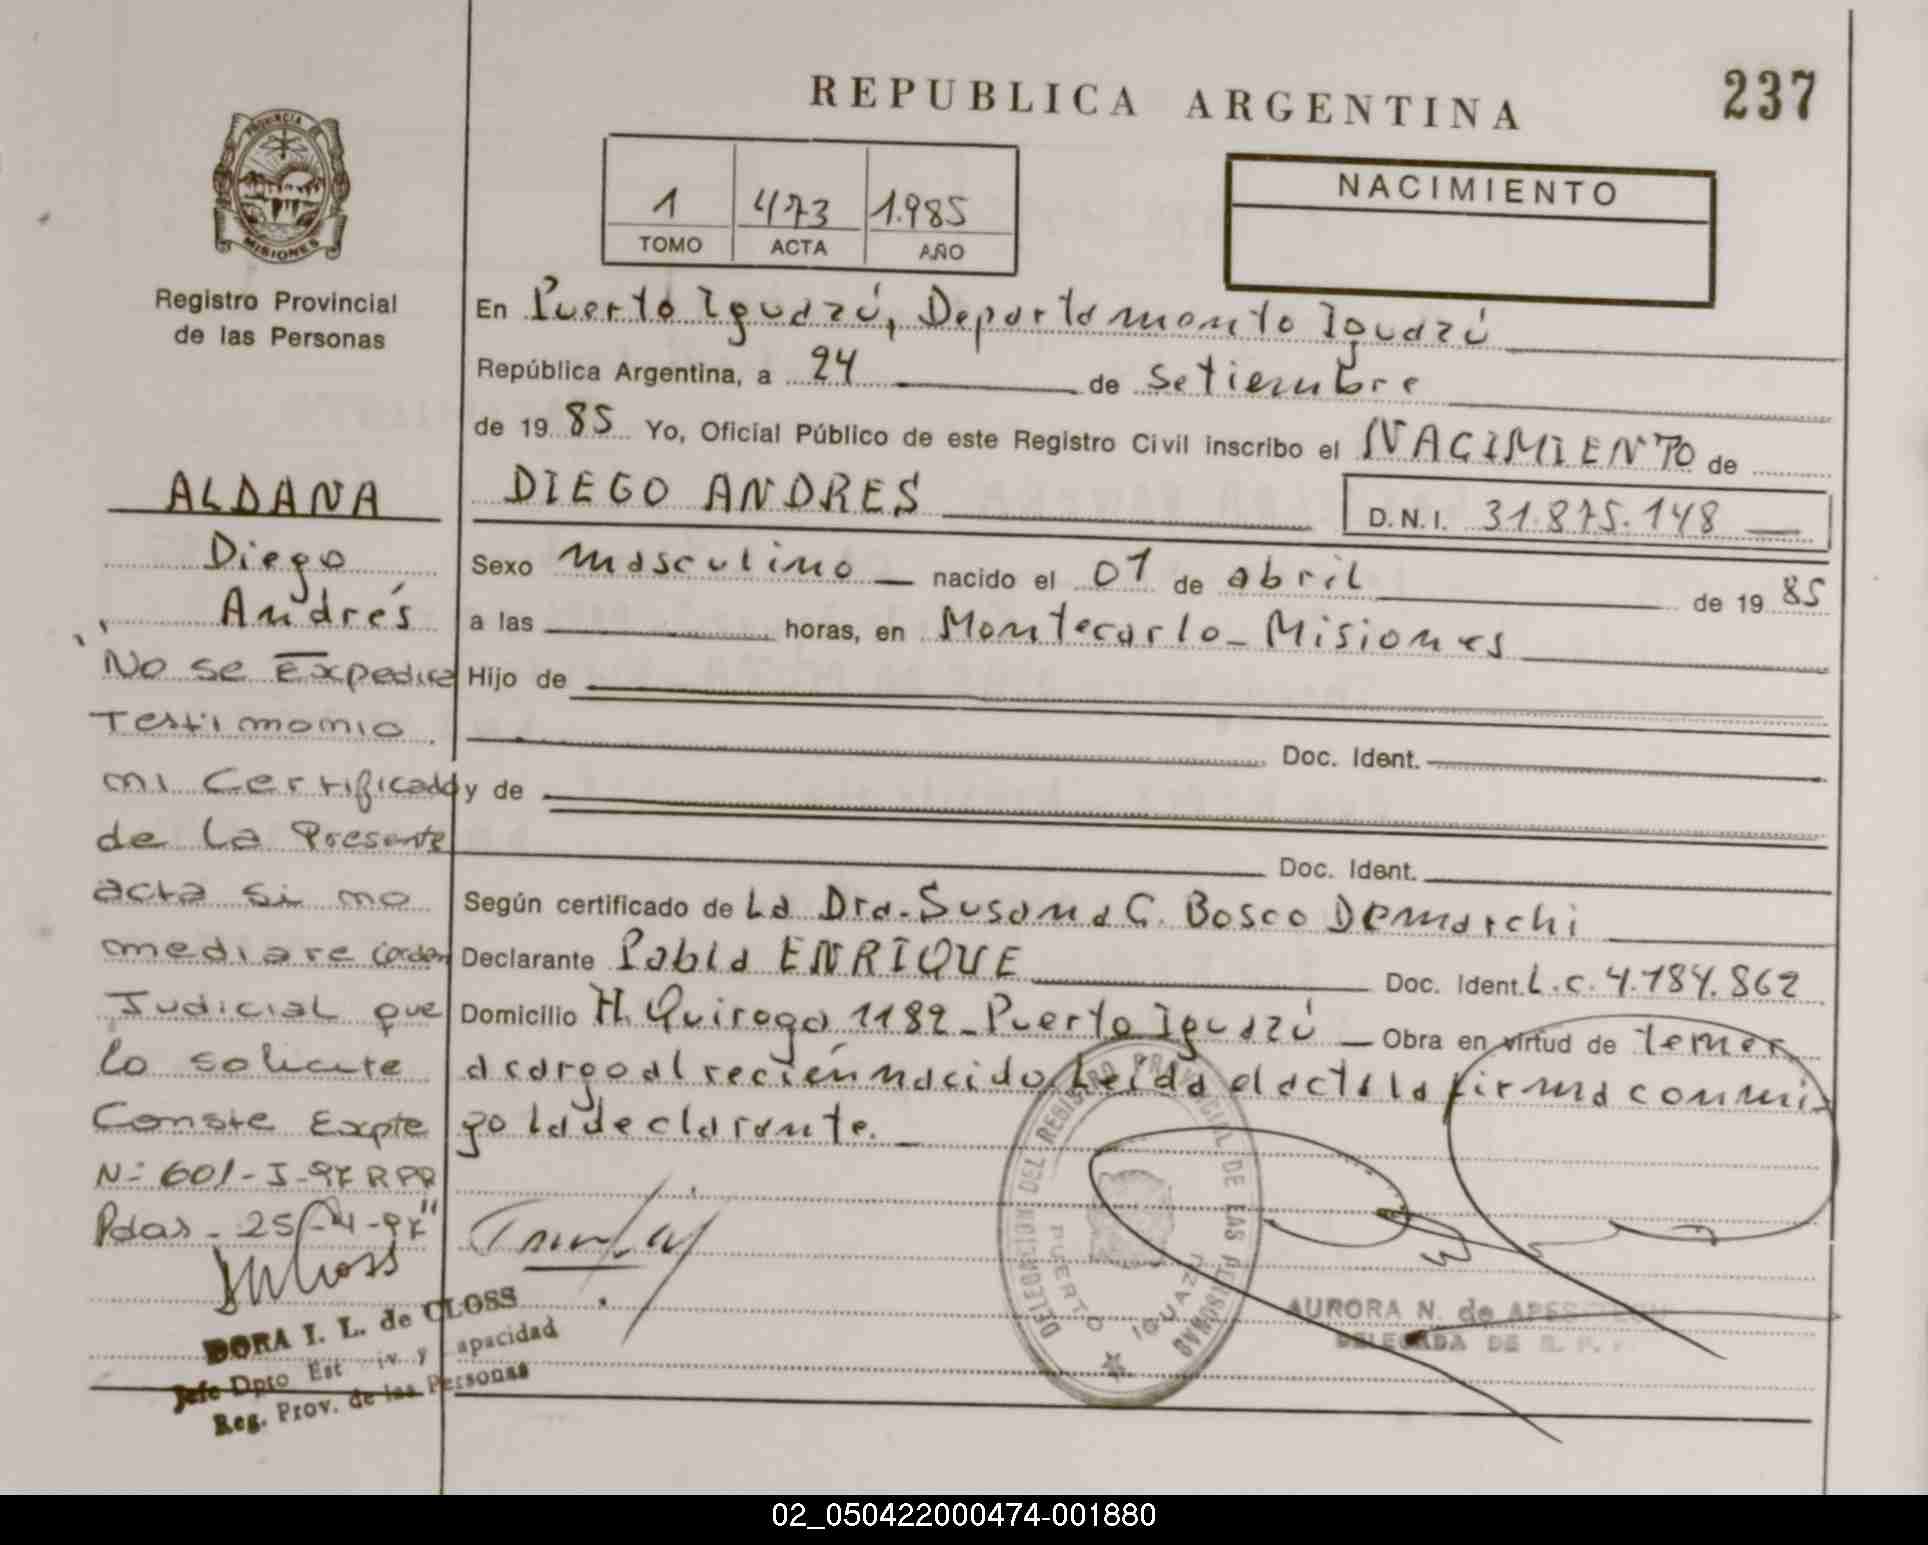 REPUBLICA ARGENTINA
237
PROVINCIA DE
MISIONES
Registro Provincial
de las Personas
1 473 1.985
TOMO ACTA AÑO
NACIMIENTO
En Puerto Iguazú, Departamento Iguazú
República Argentina, a 24 de Setiembre
de 1985 Yo, Oficial Público de este Registro Civil inscribo el NACIMIENTO de
DIEGO ANDRES
D.N.I. 31.875.148
Sexo masculino nacido el 01 de abril de 1985
a las horas, en Montecarlo - Misiones
Hijo de
Doc. Ident.
y de
Doc. Ident.
Según certificado de La Dra. Susana C. Bosco Demarchi
Declarante Pabla ENRIQUE Doc. Ident. L.C. 4.184.862
Domicilio H. Quiroga 1182 - Puerto Iguazú Obra en virtud de tener
a cargo al recién nacido. Leída el acta la firma conmi
go la declarante.
ALDANA
Diego
Andrés
"No se Expedira
Testimonio
ni Certificado
de la Presente
acta si no
mediare orden
Judicial que
lo solicite
Conste Expte
Nº 601-J-97 RPP
Pdas - 25-4-97"
DORA I. L. de CLOSS
Jefe Dpto Est iv. y apacidad
Reg. Prov. de las Personas
DELEGACION DEL REGISTRO PROVINCIAL DE LAS PERSONAS
PUERTO IGUAZU
AURORA N. de
DELEGADA DE R. P. P.
02_050422000474-001880